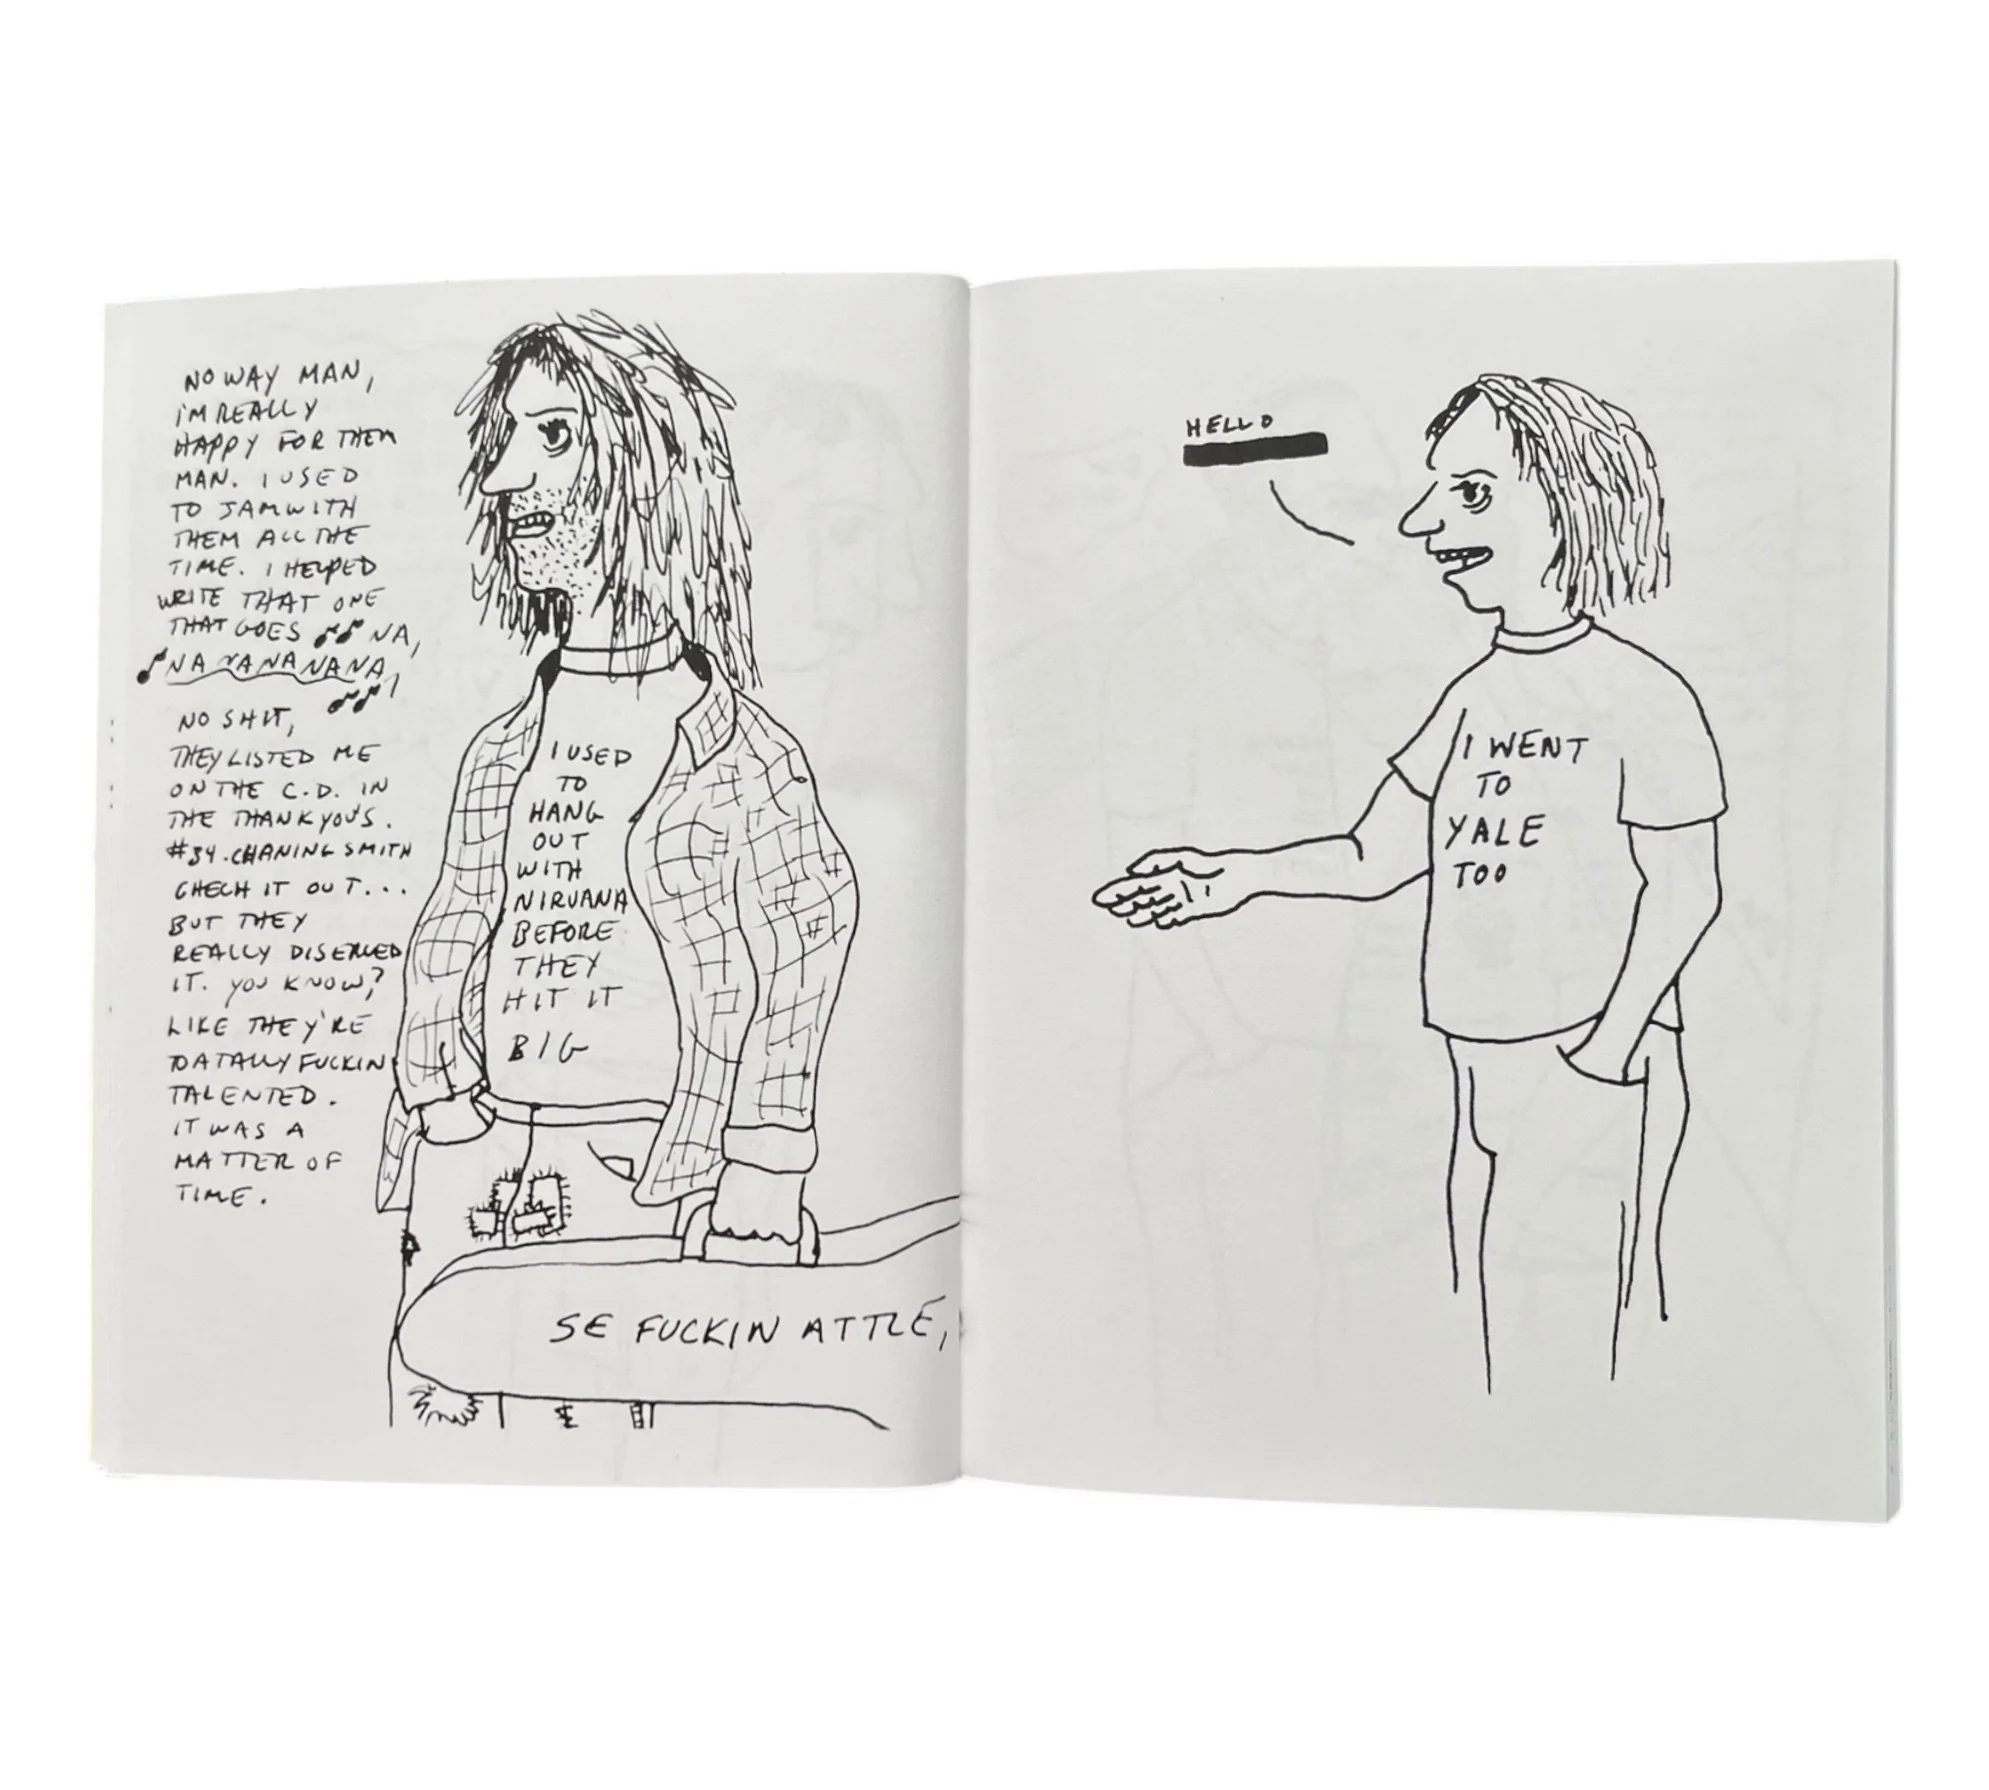 NO WAY MAN,
I'M REALLY
HAPPY FOR THEM
MAN. I USED
TO JAM WITH
THEM ALL THE
TIME. I HELPED
WRITE THAT ONE
THAT GOES NA,
NA NA NA NA NA,
NO SHIT,
THEY LISTED ME
ON THE C.D. IN
THE THANKYOU'S.
#34. CHANING SMITH
CHECH IT OUT...
BUT THEY
REALLY DISERVED
IT. YOU KNOW?
LIKE THEY'RE
TOATALLY FUCKIN
TALENTED.
IT WAS A
MATTER OF
TIME.
I USED
TO
HANG
OUT
WITH
NIRVANA
BEFORE
THEY
HIT IT
BIG
SE FUCKIN ATTLE,
HELLO
I WENT
TO
YALE
TOO